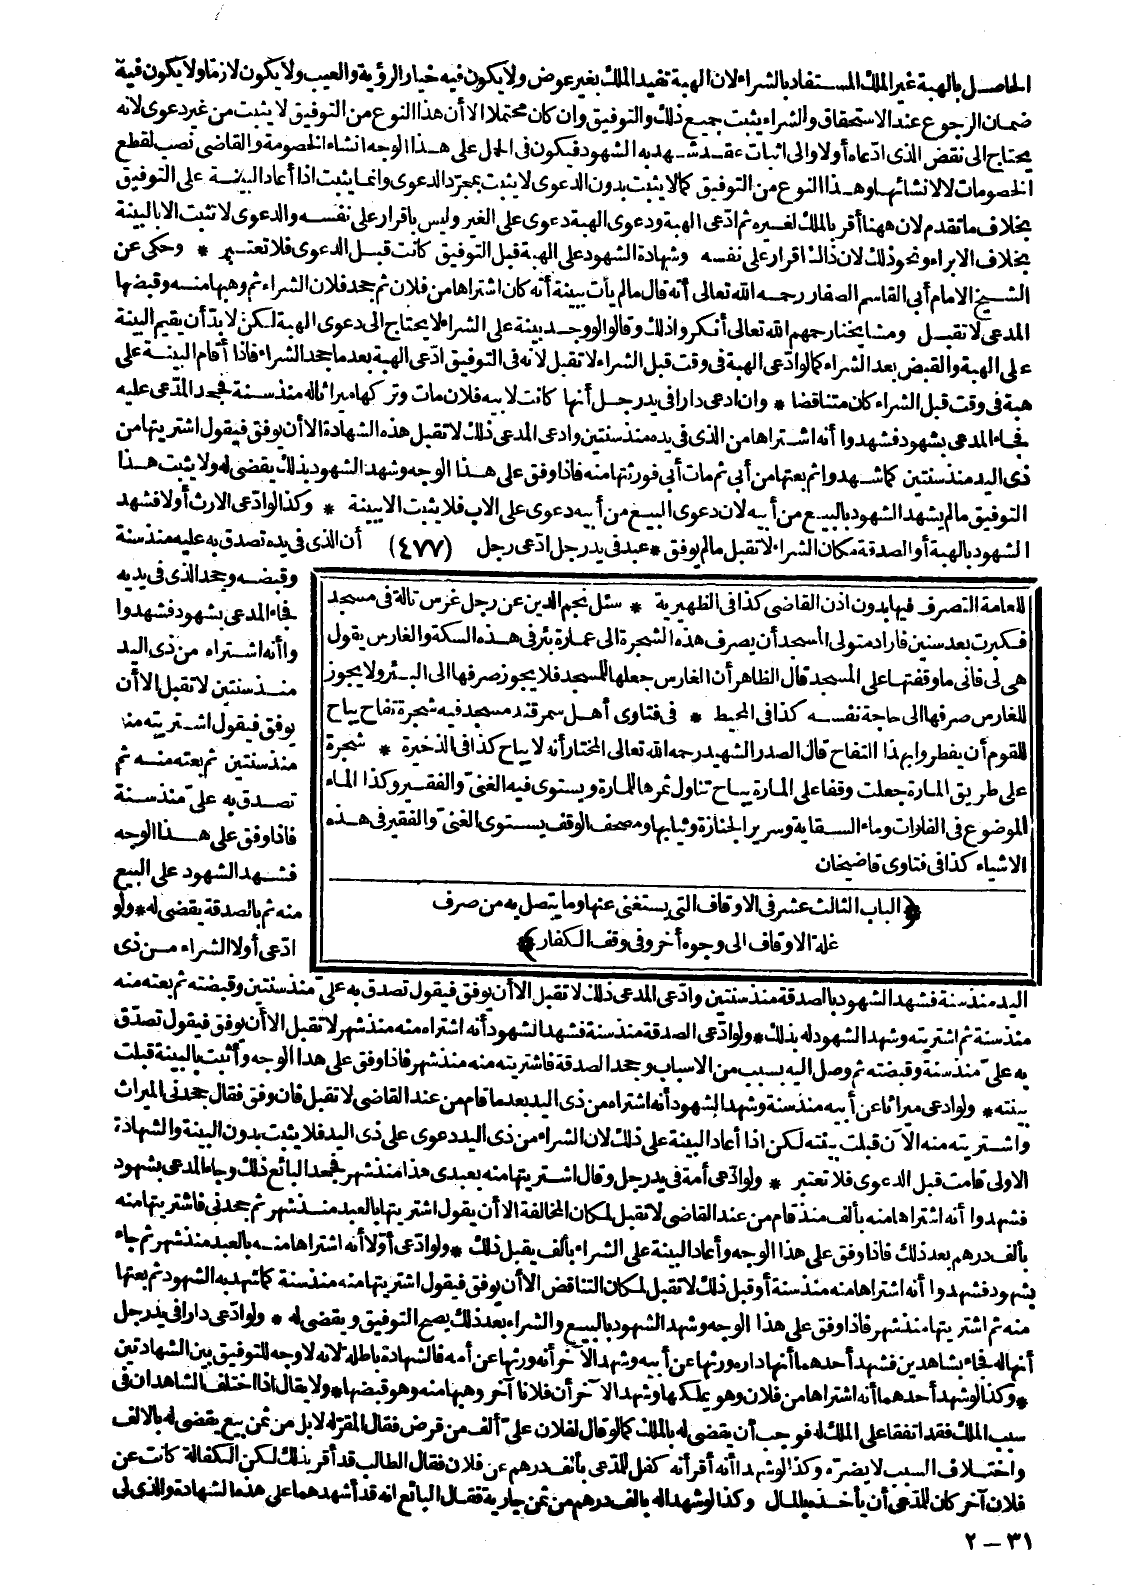 الحاصل بالهبة غير الملك المستفاد بالشراء لان الهبة تفيد الملك بغير عوض ولا يكون فيه خيار الرؤية والعيب ولا يكون لازما ولا يكون فيه
ضمان الرجوع عند الاستحقاق والشراء يثبت جميع ذلك والتوفيق وان كان محتملا الا أن هذا النوع من التوفيق لا يثبت من غير دعوى لانه
يحتاج الى نقض الذى ادّعاه أولا والى اثبات عقد شهد به الشهود فيكون فى الحال على هذا الوجه انشاء الخصومة والقاضى نصب لقطع
الخصومات لا لانشائها وهذا النوع من التوفيق كما لا يثبت بدون الدعوى لا يثبت بمجرّد الدعوى وانما يثبت اذا أعاد البينة على التوفيق
بخلاف ما تقدم لان ههنا أقر بالملك لغيره ثم ادّعى الهبة ودعوى الهبة دعوى على الغير وليس باقرار على نفسه والدعوى لا تثبت الا بالبينة
بخلاف الابراء ونحو ذلك لان ذاك اقرار على نفسه وشهادة الشهود على الهبة قبل التوفيق كانت قبل الدعوى فلا تعتبر * وحكى عن
الشيخ الامام أبى القاسم الصفار رحمه الله تعالى أنه قال ما لم يأت ببينة أنه كان اشتراها من فلان ثم جحد فلان الشراء ثم وهبها منه وقبضها
المدعى لا تقبل ومشايخنا رحمهم الله تعالى أنكروا ذلك وقالوا لو وجد بينة على الشراء لا يحتاج الى دعوى الهبة لكن لا بدّ أن يقيم البينة
على الهبة والقبض بعد الشراء كما لو ادّعى الهبة فى وقت قبل الشراء لا تقبل لانه فى التوفيق ادّعى الهبة بعد ما جحد الشراء فاذا أقام البينة على
هبة فى وقت قبل الشراء كان متناقضا * وان ادعى دارا فى يد رجل أنها كانت لابيه فلان مات وتركها ميراثا له منذ سنة فجحد المدّعى عليه
فجاء المدعى بشهود فشهدوا أنه اشتراها من الذى فى يده منذ سنتين وادعى المدعى ذلك لا تقبل هذه الشهادة الا أن يوفق فيقول اشتريتها من
ذى اليد منذ سنتين كما شهدوا ثم بعتها من أبى ثم مات أبى فورثتها منه فاذا وفق على هذا الوجه وشهد الشهود بذلك يقضى له ولا يثبت هذا
التوفيق ما لم يشهد الشهود بالبيع من أبيه لان دعوى البيع من أبيه دعوى على الاب فلا يثبت الا ببينة * وكذا لو ادّعى الارث أولا فشهد
الشهود بالهبة أو الصدقة مكان الشراء لا تقبل ما لم يوفق * عبد فى يد رجل ادّعى رجل (٤٧٧) أن الذى فى يده تصدق به عليه منذ سنة
وقبضه وجحد الذى فى يديه
فجاء المدعى بشهود فشهدوا
وا أنه اشتراه من ذى اليد
منذ سنتين لا تقبل الا أن
يوفق فيقول اشتريته منه
منذ سنتين ثم بعته منه ثم
تصدق به علىّ منذ سنة
فاذا وفق على هذا الوجه
فشهد الشهود على البيع
منه ثم بالصدقة يقضى له * ولو
ادّعى أولا الشراء من ذى
للعامة التصرف فيها بدون اذن القاضى كذا فى الظهيرية * سئل نجم الدين عن رجل غرس تالة فى مسجد
فكبرت بعد سنين فاراد متولى المسجد أن يصرف هذه الشجرة الى عمارة بئر فى هذه السكة والغارس يقول
هى لى فانى ما وقفتها على المسجد قال الظاهر أن الغارس جعلها للمسجد فلا يجوز صرفها الى البئر ولا يجوز
للغارس صرفها الى حاجة نفسه كذا فى المحيط * فى فتاوى أهل سمرقند مسجد فيه شجرة تفاح يباح
للقوم أن يفطروا بهذا التفاح قال الصدر الشهيد رحمه الله تعالى المختار أنه لا يباح كذا فى الذخيرة * شجرة
على طريق المارة جعلت وقفا على المارة يباح تناول ثمرها للمارة ويستوى فيه الغنىّ والفقير وكذا الماء
الموضوع فى الفلوات وماء السقاية وسرير الجنازة وثيابها ومصحف الوقف يستوى الغنىّ والفقير فى هذه
الاشياء كذا فى فتاوى قاضيخان
﴿الباب الثالث عشر فى الاوقاف التى يستغنى عنها وما يتصل به من صرف
غلة الاوقاف الى وجوه أخر وفى وقف الكفار﴾
اليد منذ سنة فشهد الشهود بالصدقة منذ سنتين وادّعى المدعى ذلك لا تقبل الا أن يوفق فيقول تصدق به علىّ منذ سنتين وقبضته ثم بعته منه
منذ سنة ثم اشتريته وشهد الشهود له بذلك * ولو ادّعى الصدقة منذ سنة فشهد الشهود أنه اشتراه منه منذ شهر لا تقبل الا أن يوفق فيقول تصدّق
به علىّ منذ سنة وقبضته ثم وصل اليه بسبب من الاسباب وجحد الصدقة فاشتريته منه منذ شهر فاذا وفق على هذا الوجه وأثبت بالبينة قبلت
بينته * ولو ادعى ميراثا عن أبيه منذ سنة وشهد الشهود أنه اشتراه من ذى اليد بعد ما قام من عند القاضى لا تقبل فان وفق فقال جحدنى الميراث
واشتريته منه الآن قبلت بينته لكن اذا أعاد البينة على ذلك لان الشراء من ذى اليد دعوى على ذى اليد فلا يثبت بدون البينة والشهادة
الاولى قامت قبل الدعوى فلا تعتبر * ولو ادّعى أمة فى يد رجل وقال اشتريتها منه بعبدى هذا منذ شهر فجحد البائع ذلك وجاء المدعى بشهود
فشهدوا أنه اشتراها منه بألف منذ قام من عند القاضى لا تقبل لمكان المخالفة الا أن يقول اشتريتها بالعبد منذ شهر ثم جحدنى فاشتريتها منه
بألف درهم بعد ذلك فاذا وفق على هذا الوجه وأعاد البينة على الشراء بألف يقبل ذلك * ولو ادّعى أوّلا أنه اشتراها منه بالعبد منذ شهر ثم جاء
بشهود فشهدوا أنه اشتراها منه منذ سنة أو قبل ذلك لا تقبل لمكان التناقض الا أن يوفق فيقول اشتريتها منه منذ سنة كما شهد به الشهود ثم بعتها
منه ثم اشتريتها منذ شهر فاذا وفق على هذا الوجه وشهد الشهود بالبيع والشراء بعد ذلك يصح التوفيق ويقضى له * ولو ادّعى دارا فى يد رجل
أنها له فجاء بشاهدين فشهد أحدهما أنها داره ورثها عن أبيه وشهد الآخر أنه ورثها عن أمه فالشهادة باطلة لانه لا وجه للتوفيق بين الشهادتين
* وكذا لو شهد أحدهما أنه اشتراها من فلان وهو يملكها وشهد الآخر أن فلانا آخر وهبها منه وهو قبضها * ولا يقال اذا اختلف الشاهدان فى
سبب الملك فقد اتفقا على الملك له فوجب أن يقضى له بالملك كما لو قال لفلان علىّ ألف من قرض فقال المقرّ له لا بل من ثمن بيع يقضى له بالالف
واختلاف السبب لا يضرّه وكذا لو شهدا أنه أقر أنه كفل للمدّعى بألف درهم عن فلان فقال الطالب قد أقر بذلك لكن الكفالة كانت عن
فلان آخر كان للمدّعى أن يأخذه بالمال وكذا لو شهدا له بالف درهم من ثمن جارية فقال البائع انه قد أشهدهما على هذه الشهادة والذى لى
٣١ – ٢